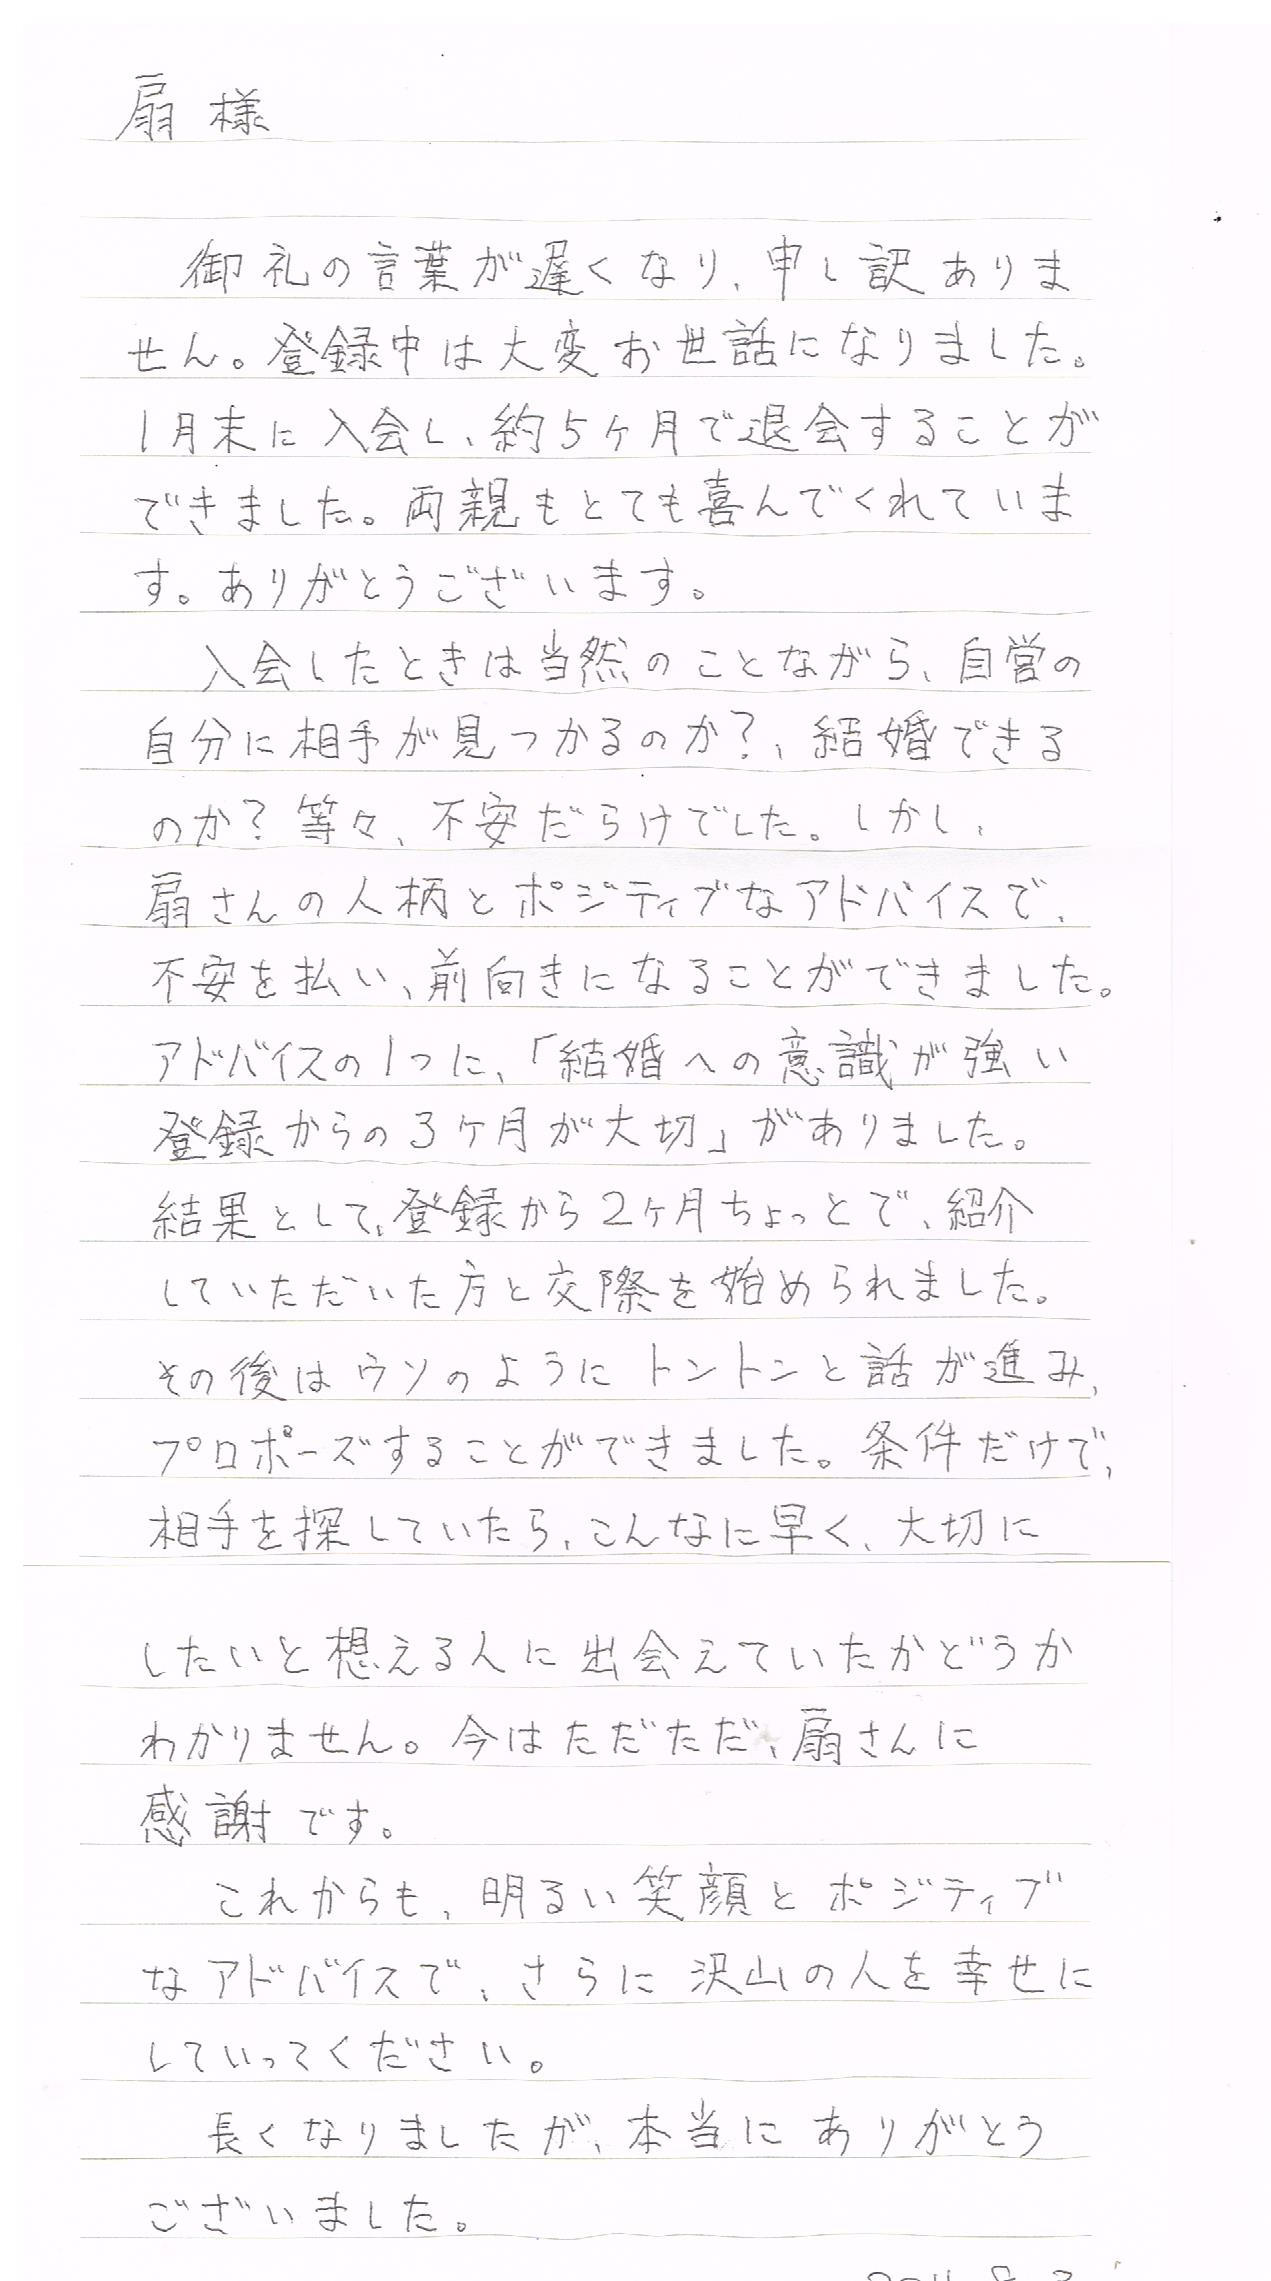 扇 様
御礼の言葉が遅くなり、申し訳ありま
せん。登録中は大変お世話になりました。
1月末に入会し、約5ヶ月で退会することが
できました。両親もとても喜んでくれていま
す。ありがとうございます。
入会したときは当然のことながら、自営の
自分に相手が見つかるのか?、結婚できる
のか?等々、不安だらけでした。しかし、
扇さんの人柄とポジティブなアドバイスで、
不安を払い、前向きになることができました。
アドバイスの1つに、「結婚への意識が強い
登録からの3ヶ月が大切」がありました。
結果として、登録から2ヶ月ちょっとで、紹介
していただいた方と交際を始められました。
その後はウソのようにトントンと話が進み、
プロポーズすることができました。条件だけで、
相手を探していたら、こんなに早く、大切に
したいと想える人に出会えていたかどうか
わかりません。今はただただ、扇さんに
感謝です。
これからも、明るい笑顔とポジティブ
なアドバイスで、さらに沢山の人を幸せに
していってください。
長くなりましたが、本当にありがとう
ございました。